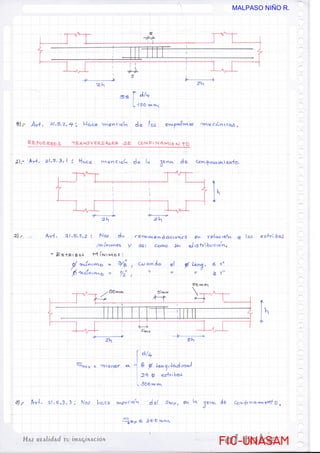 MALPASO NIÑO R.
S
S
2h
2h
S≤ [ d/4
100 mm
Art. 21.5.2.4: Hace mención de los empalmes mecánicos.
REFUERZOS TRANSVERSALES DE CONFINAMIENTO
1).- Art. 21.5.3.1: Hace mención de la zona de confinamiento.
h
2h
2h
2).- Art. 21.5.3.2: Nos da recomendaciones en relación a los estribos
mínimos y así como su distribución.
- Estribos Mínimos:
Ø mínimo = 3/8", cuando el Ø long. ≤ 1"
Ø mínimo = 1/2", " " " ≥ 1"
50mm
Smax
50mm
h
Smax
2h
2h
Smax = menor a
d/4
Ø longitudinal
24 Ø estribos
300mm
Art. 21.5.3.3: Nos hace mención del Smax, en la zona de confinamiento.
Haz realidad tu imaginación
FIC-UNASAM